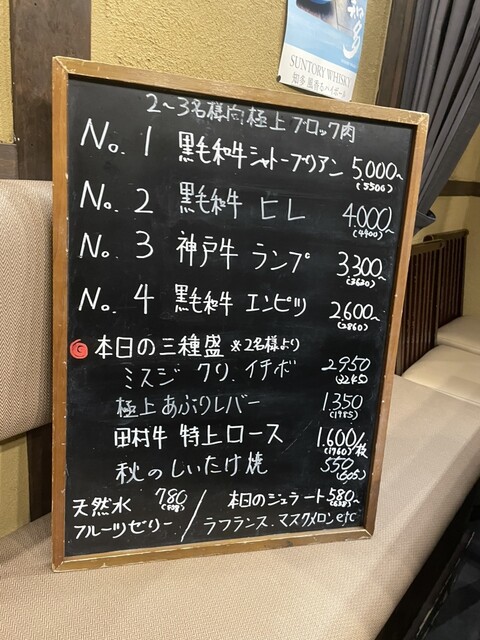 知多
SUNTORY WHISKY
知多 風香るハイボール
2～3名様向極上ブロック肉
No. 1 黒毛和牛シャトーブリアン 5,000~
(5500)
No. 2 黒毛和牛 ヒレ 4,000~
(4400)
No. 3 神戸牛 ランプ 3300~
(3630)
No. 4 黒毛和牛 エンピツ 2600~
(2860)
本日の三種盛 ※2名様より
ミスジ クリ、イチボ 2950
(3245)
極上あぶりレバー 1,350
(1485)
田村牛 特上ロース 1,600/枚
(1760)
秋のしいたけ焼 550
(605)
天然水 780 / 本日のジェラート 580~
(858) (638)
フルーツゼリー / ラフランス、マスクメロンetc